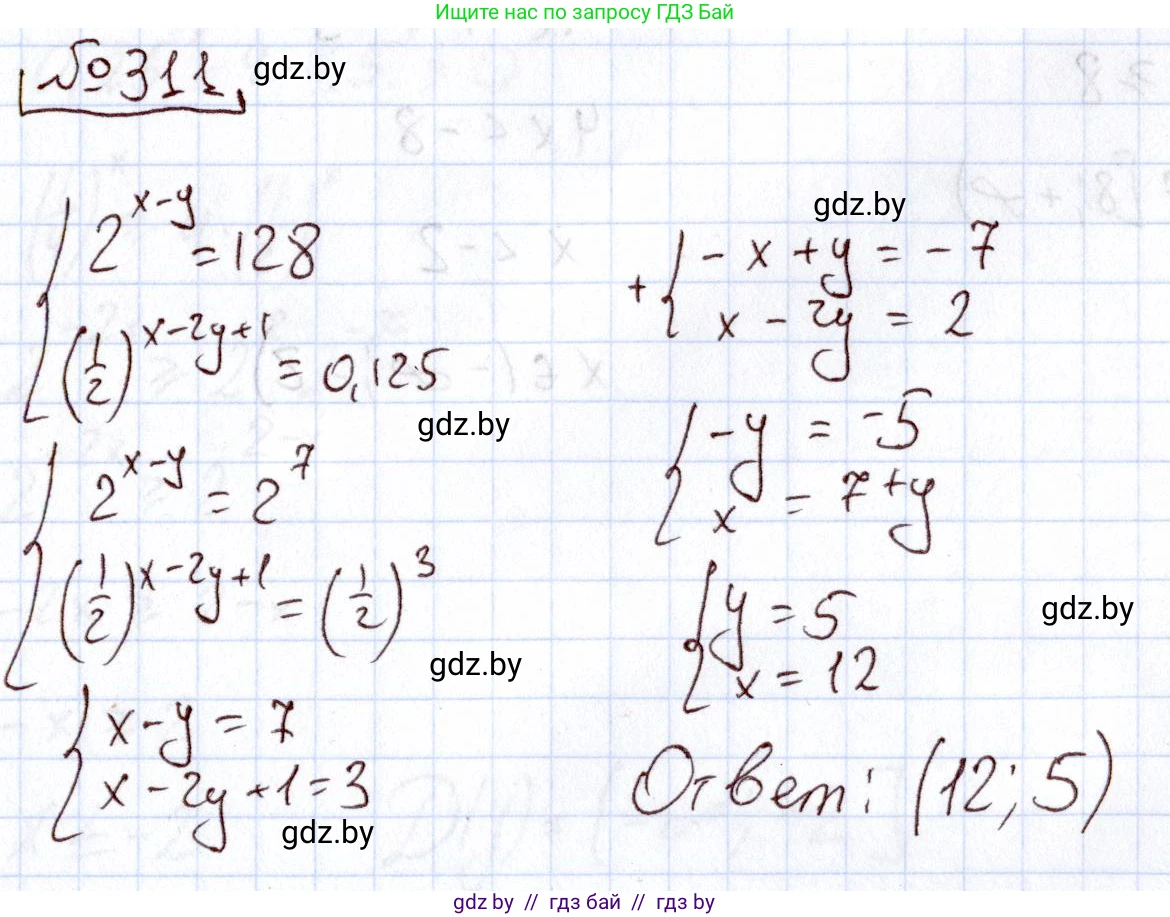 Ищите нас по запросу ГДЗ Бай
№311 gdz.by
2^(x-y) = 128
(1/2)^(x-2y+1) = 0,125
gdz.by
2^(x-y) = 2^7
(1/2)^(x-2y+1) = (1/2)^3
gdz.by
x-y = 7
x-2y+1=3
gdz.by
gdz.by
+ { -x+y = -7
x-2y = 2
-y = -5
x = 7+y
y = 5
gdz.by
x = 12
Ответ: (12; 5)
gdz.by // гдз бай // гдз by